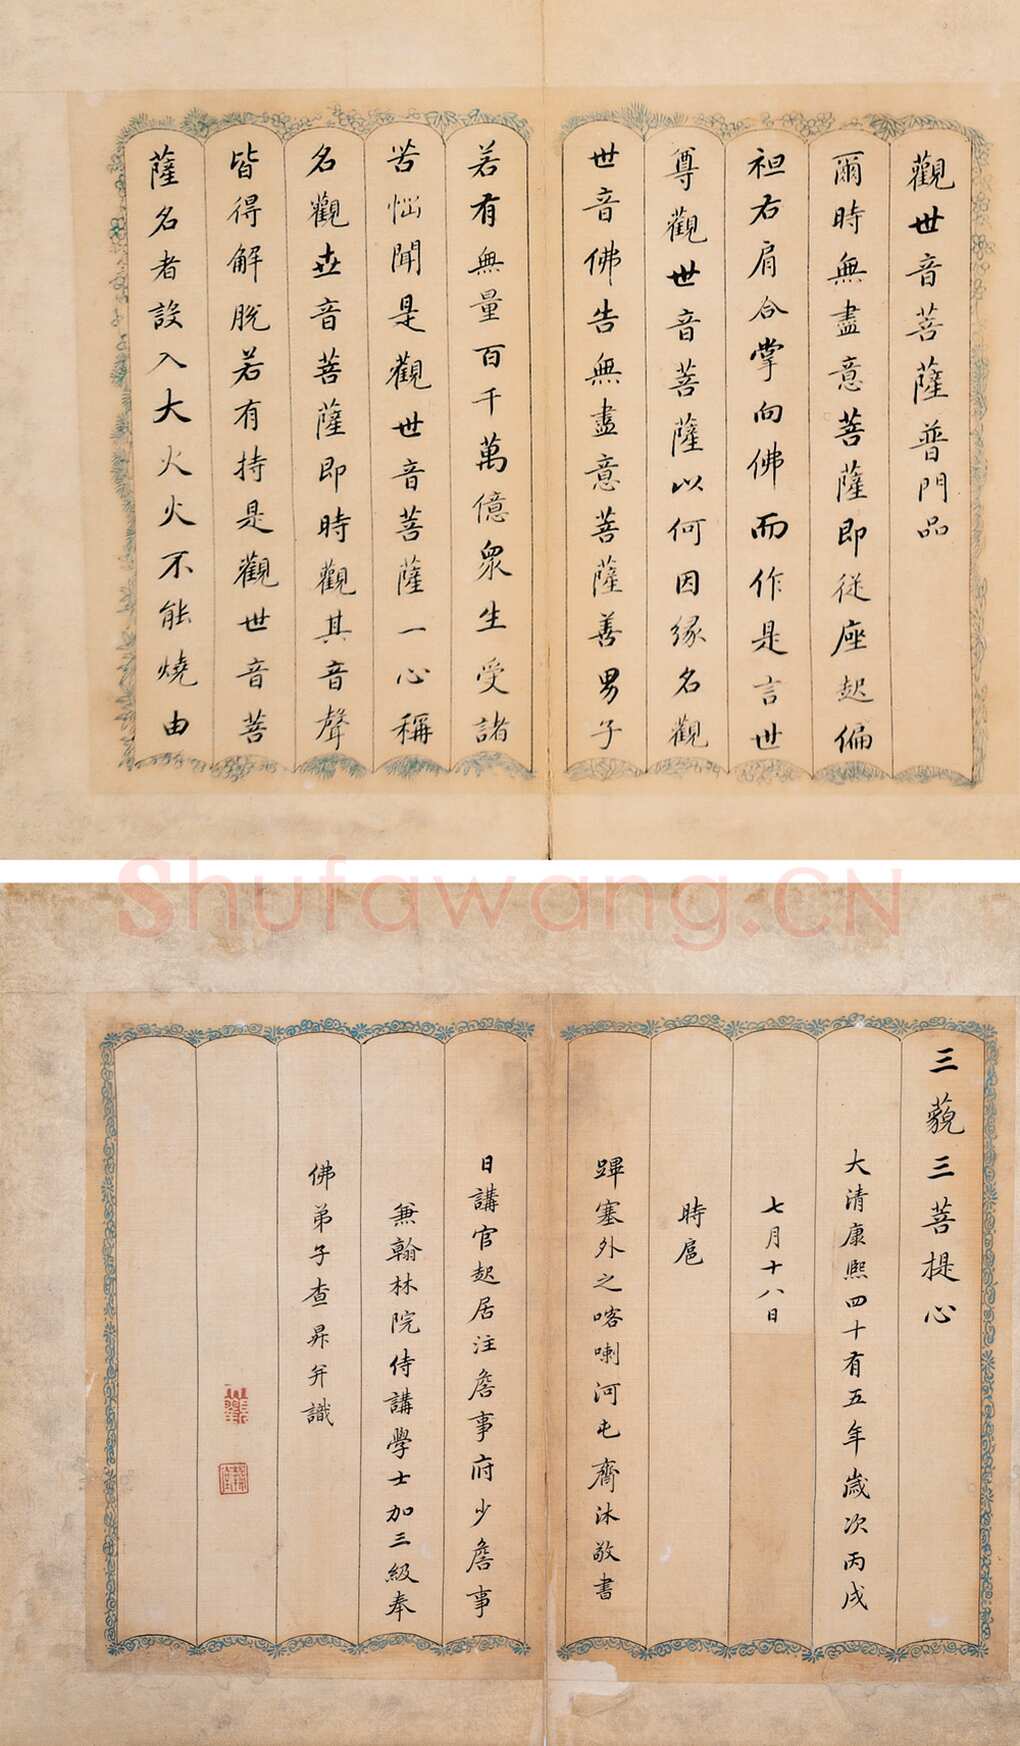 觀世音菩薩普門品
爾時無盡意菩薩即從座起偏
袒右肩合掌向佛而作是言世
尊觀世音菩薩以何因緣名觀
世音佛告無盡意菩薩善男子
若有無量百千萬億衆生受諸
苦惱聞是觀世音菩薩一心稱
名觀世音菩薩即時觀其音聲
皆得解脫若有持是觀世音菩
薩名者設入大火火不能燒由
Shufawang.CN
三藐三菩提心
大清康熙四十有五年歲次丙戌
七月十八日
時扈
蹕塞外之喀喇河屯齋沐敬書
日講官起居注詹事府少詹事
兼翰林院侍講學士加三級奉
佛弟子查昇并識